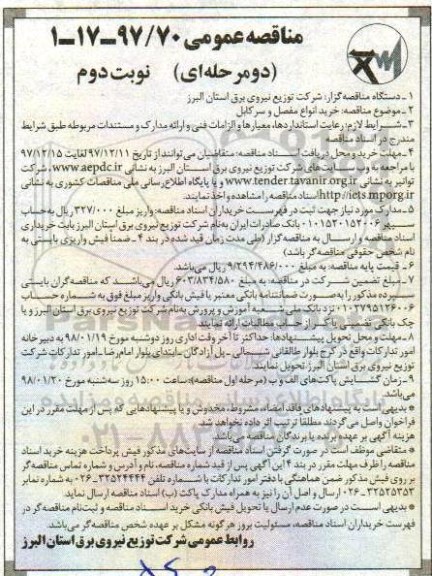 مناقصه عمومی ۹۷/۷۰-۱۷-۱
(دو مرحله ای) نوبت دوم
۱- دستگاه مناقصه گزار: شرکت توزیع نیروی برق استان البرز
۲- موضوع مناقصه: خرید انواع مفصل و سرکابل
۳- شرایط لازم: رعایت استانداردها، معیارها و الزامات فنی و ارائه مدارک و مستندات مربوطه طبق شرایط
مندرج در اسناد مناقصه
۴- مهلت خرید و محل دریافت اسناد مناقصه: متقاضیان می توانند از تاریخ ۹۷/۱۲/۱۱ لغایت ۹۷/۱۲/۱۵
با مراجعه به وب سایت های شرکت توزیع نیروی برق استان البرز به نشانی www.aepdc.ir، شرکت
توانیر به نشانی www.tender.tavanir.org.ir و یا پایگاه اطلاع رسانی ملی مناقصات کشوری به نشانی
http://iets.mporg.ir اسناد مناقصه را مشاهده و اخذ نمایند.
۵- مدارک مورد نیاز جهت ثبت در فهرست خریداران اسناد مناقصه: واریز مبلغ ۳۲۷/۰۰۰ ریال به حساب
سپهر ۰۱۰۱۵۲۰۱۵۲۰۰۶ بانک صادرات ایران به نام شرکت توزیع نیروی برق استان البرز بابت خریداری
اسناد مناقصه و ارسال به مناقصه گزار (طی مدت زمان قید شده در بند ۴ - ضمنا فیش واریزی بایستی به
نام شخص حقوقی مناقصه گر باشد)
۶- قیمت پایه مناقصه: به مبلغ ۹/۲۹۴/۴۸۶/۰۰۰ ریال می باشد.
۷- مبلغ تضمین شرکت در مناقصه: به مبلغ ۶۰۳/۸۳۴/۵۸۰ ریال می باشد که مناقصه گران بایستی
سپرده مذکور را به صورت ضمانتنامه بانکی معتبر یا فیش بانکی واریز مبلغ فوق به شماره حساب
۰۱۰۲۷۹۵۱۲۶۰۰۶ نزد بانک ملی شعبه آموزش و پرورش به نام شرکت توزیع نیروی برق استان البرز و یا
چک بانکی تضمینی یا کسر از محل مطالبات ارائه نمایند
۸- مهلت و محل تحویل پیشنهادها: حداکثر تا آخر وقت اداری روز دوشنبه مورخ ۹۸/۰۱/۱۹ به دبیرخانه
امور تدارکات واقع در کرج بلوار طالقانی شمالی - پل آزادگان - ابتدای بلوار امام رضا - امور تدارکات شرکت
توزیع نیروی برق استان البرز، تحویل نمایند.
۹- زمان گشایش پاکت های الف و ب (مرحله اول مناقصه): ساعت ۱۵:۰۰ روز سه شنبه مورخ ۹۸/۰۱/۲۰
می باشد.
* بدیهی است به پیشنهادهای فاقد امضاء، مشروط، مخدوش و یا پیشنهادهایی که پس از مهلت مقرر در این
فراخوان واصل می گردند مطلقا ترتیب اثر داده نخواهد شد.
هزینه آگهی بر عهده برنده یا برندگان مناقصه می باشد
* متقاضی موظف است در صورت گرفتن اسناد مناقصه از سایت های مذکور فیش پرداخت هزینه خرید اسناد
مناقصه را ظرف مهلت مقرر در بند ۴ این آگهی پس از قید شماره مناقصه، نام و آدرس و شماره تماس مناقصه گر
بر روی فیش مذکور ضمن هماهنگی با دفتر امور تدارکات با شماره تلفن ۳۲۵۲۴۴۴۴-۰۲۶ به شماره نمابر
۳۲۵۲۵۳۵۳-۰۲۶ ارسال و اصل آن را نیز به همراه مدارک پاکت (ب) اسناد مناقصه ارسال نماید.
* بدیهی است در صورت عدم ارسال یا تحویل فیش بانکی خرید اسناد مناقصه و ثبت نام مناقصه گر در
فهرست خریداران اسناد مناقصه، مسئولیت بروز هرگونه مشکل بر عهده شخص مناقصه گر می باشد.
روابط عمومی شرکت توزیع نیروی برق استان البرز